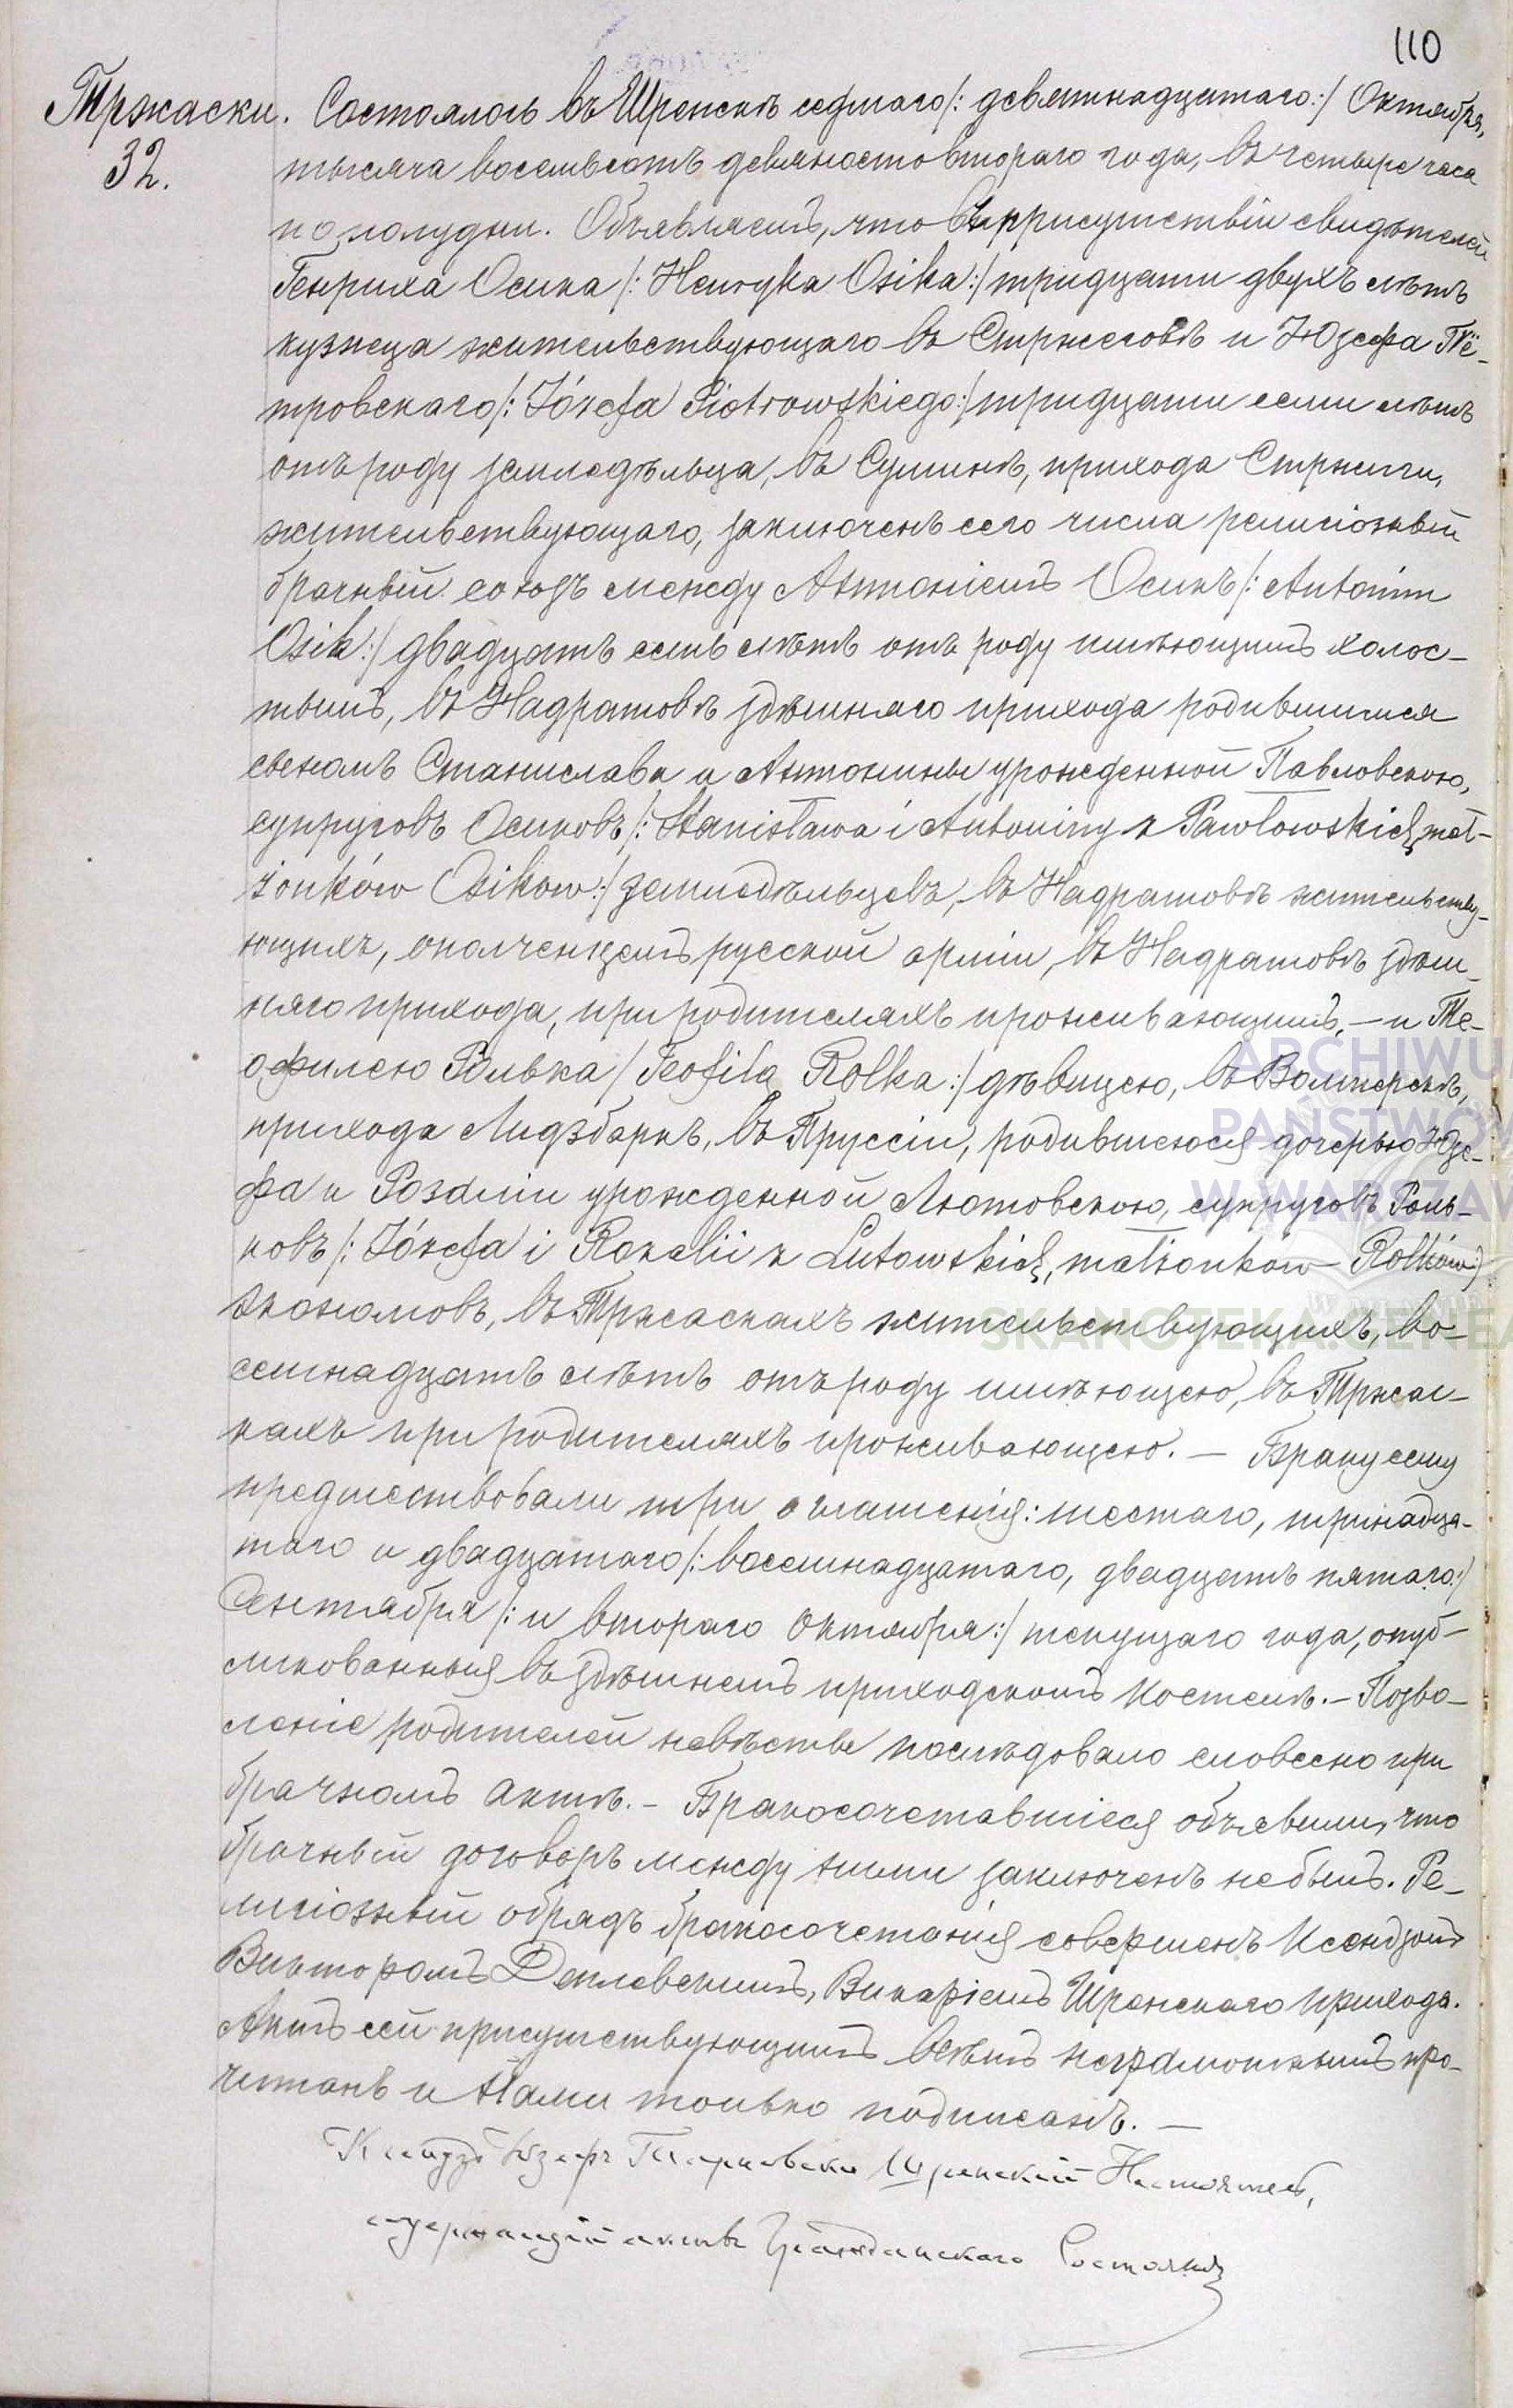 110
Тржаски. Состоялось въ Шренскѣ седьмаго /: девятнадцатаго :/ Октября,
32. тысяча восемьсотъ девяносто втораго года, въ четыре часа
по полудни. Объявляемъ, что въ присутствіи свидѣтелей
Генриха Осика /: Henryka Osika :/ тридцати двухъ лѣтъ
кузнеца жительствующаго въ Стржеговѣ и Юзефа Пё-
тровскаго /: Józefa Piotrowskiego :/ тридцати семи лѣтъ
отъ роду земледѣльца, въ Суминѣ, прихода Стрниги,
жительствующаго, заключенъ сего числа религіозный
брачный союзъ между Антоніемъ Осикъ /: Antonim
Osik :/ двадцать семь лѣтъ отъ роду имѣющимъ холос-
тымъ, въ Надратовѣ здѣшняго прихода родившимся
сыномъ Станислава и Антонины урожденной Павловскою,
супруговъ Осиковъ /: Stanisława i Antoniny z Pawłowskich, mał-
żonków Osikow :/ земледѣльцевъ, въ Надратовѣ жительству-
ющихъ, ополченцемъ русской арміи, въ Надратовѣ здѣш-
няго прихода, при родителяхъ проживающимъ, — и Те-
офилею Ролька / Teofilą Rolka :/ дѣвицею, въ
прихода Лидзбаркъ, въ Пруссіи, родившеюся дочерью Юзе-
фа и Розаліи урожденной Лютовскою, супруговъ Роль-
ковъ /: Józefa i Rozalii z Lutowskich, małżonkow Rolków :/
экономовъ, въ Тржаскахъ жительствующихъ, во-
семнадцать лѣтъ отъ роду имѣющею, въ Тржас-
кахъ при родителяхъ проживающею. — Браку сему
предшествовали три оглашенія: шестаго, тринадца-
таго и двадцатаго /: восемнадцатаго, двадцать пятаго :/
Сентября /: и втораго Октября :/ текущаго года, опуб-
ликованныя въ здѣшнемъ приходскомъ костелѣ. — Позво-
леніе родителей невѣсты послѣдовало словесно при
брачномъ актѣ. — Бракосочетавшіеся объявили, что
брачный договоръ между ними заключенъ не былъ. Ре-
лигіозный обрядъ бракосочетанія совершенъ Ксендзомъ
Викторомъ Деплевскимъ, Викаріемъ Шренскаго прихода.
Актъ сей присутствующимъ всѣмъ неграмотнымъ про-
читанъ и Нами только подписанъ. —
Ксендзъ Юзефъ Шренскій Настоятель,
содержащій акты Гражданскаго Состоянія
ARCHIWU
PAŃSTWOW
W WARSZAW
SKANOTEKA.GENEA